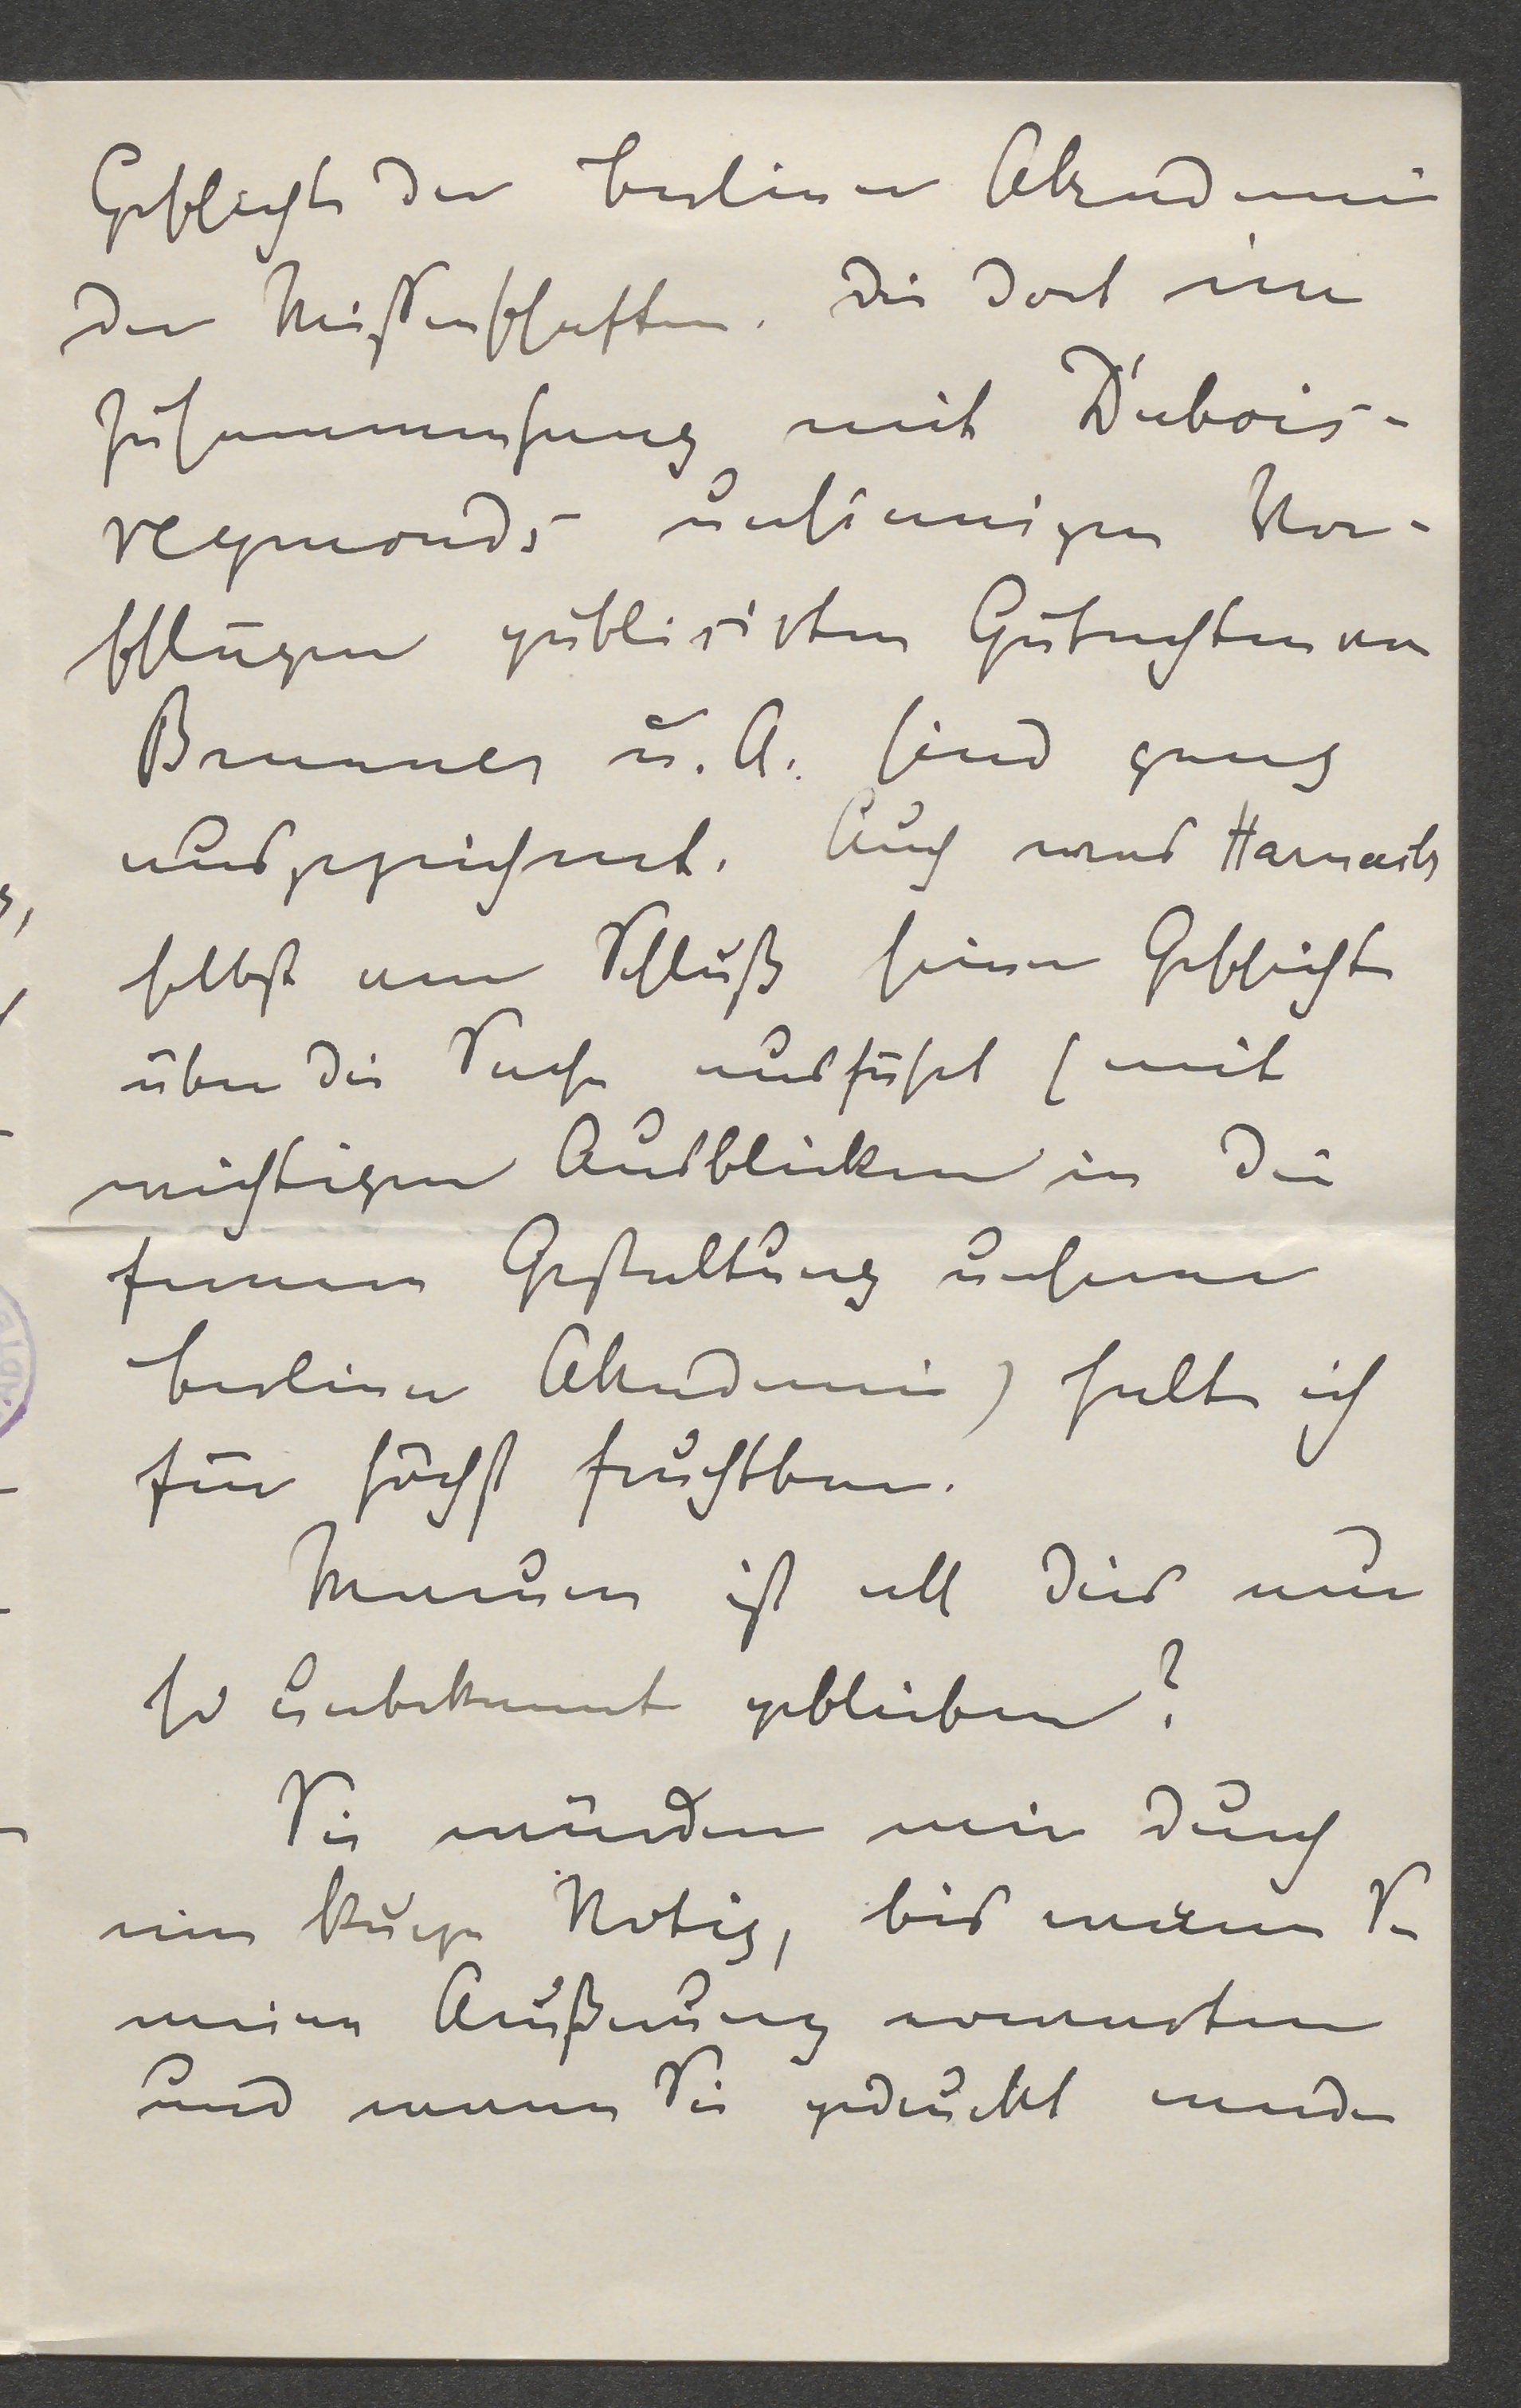 Geschichte der Berliner Akademie
der Wissenschaften. Die dort im
Zusammenhang mit Dubois-
reymonds unsinnigen Vor-
schlägen publicirten Gutachten von
Brunner u. A. sind ganz
ausgezeichnet. Auch was Harnack
selbst am Schluß seiner Geschichte
über die Sache ausführt (mit
wichtigen Ausblicken in die
fernere Gestaltung unserer
Berliner Akademie) halte ich
für höchst fruchtbar.
Warum ist all dies nur
so unbekannt geblieben?
Sie würden mir durch
eine kurze Notiz, bis wann Sie
meine Äußerung erwarten
und wann sie gedruckt werden